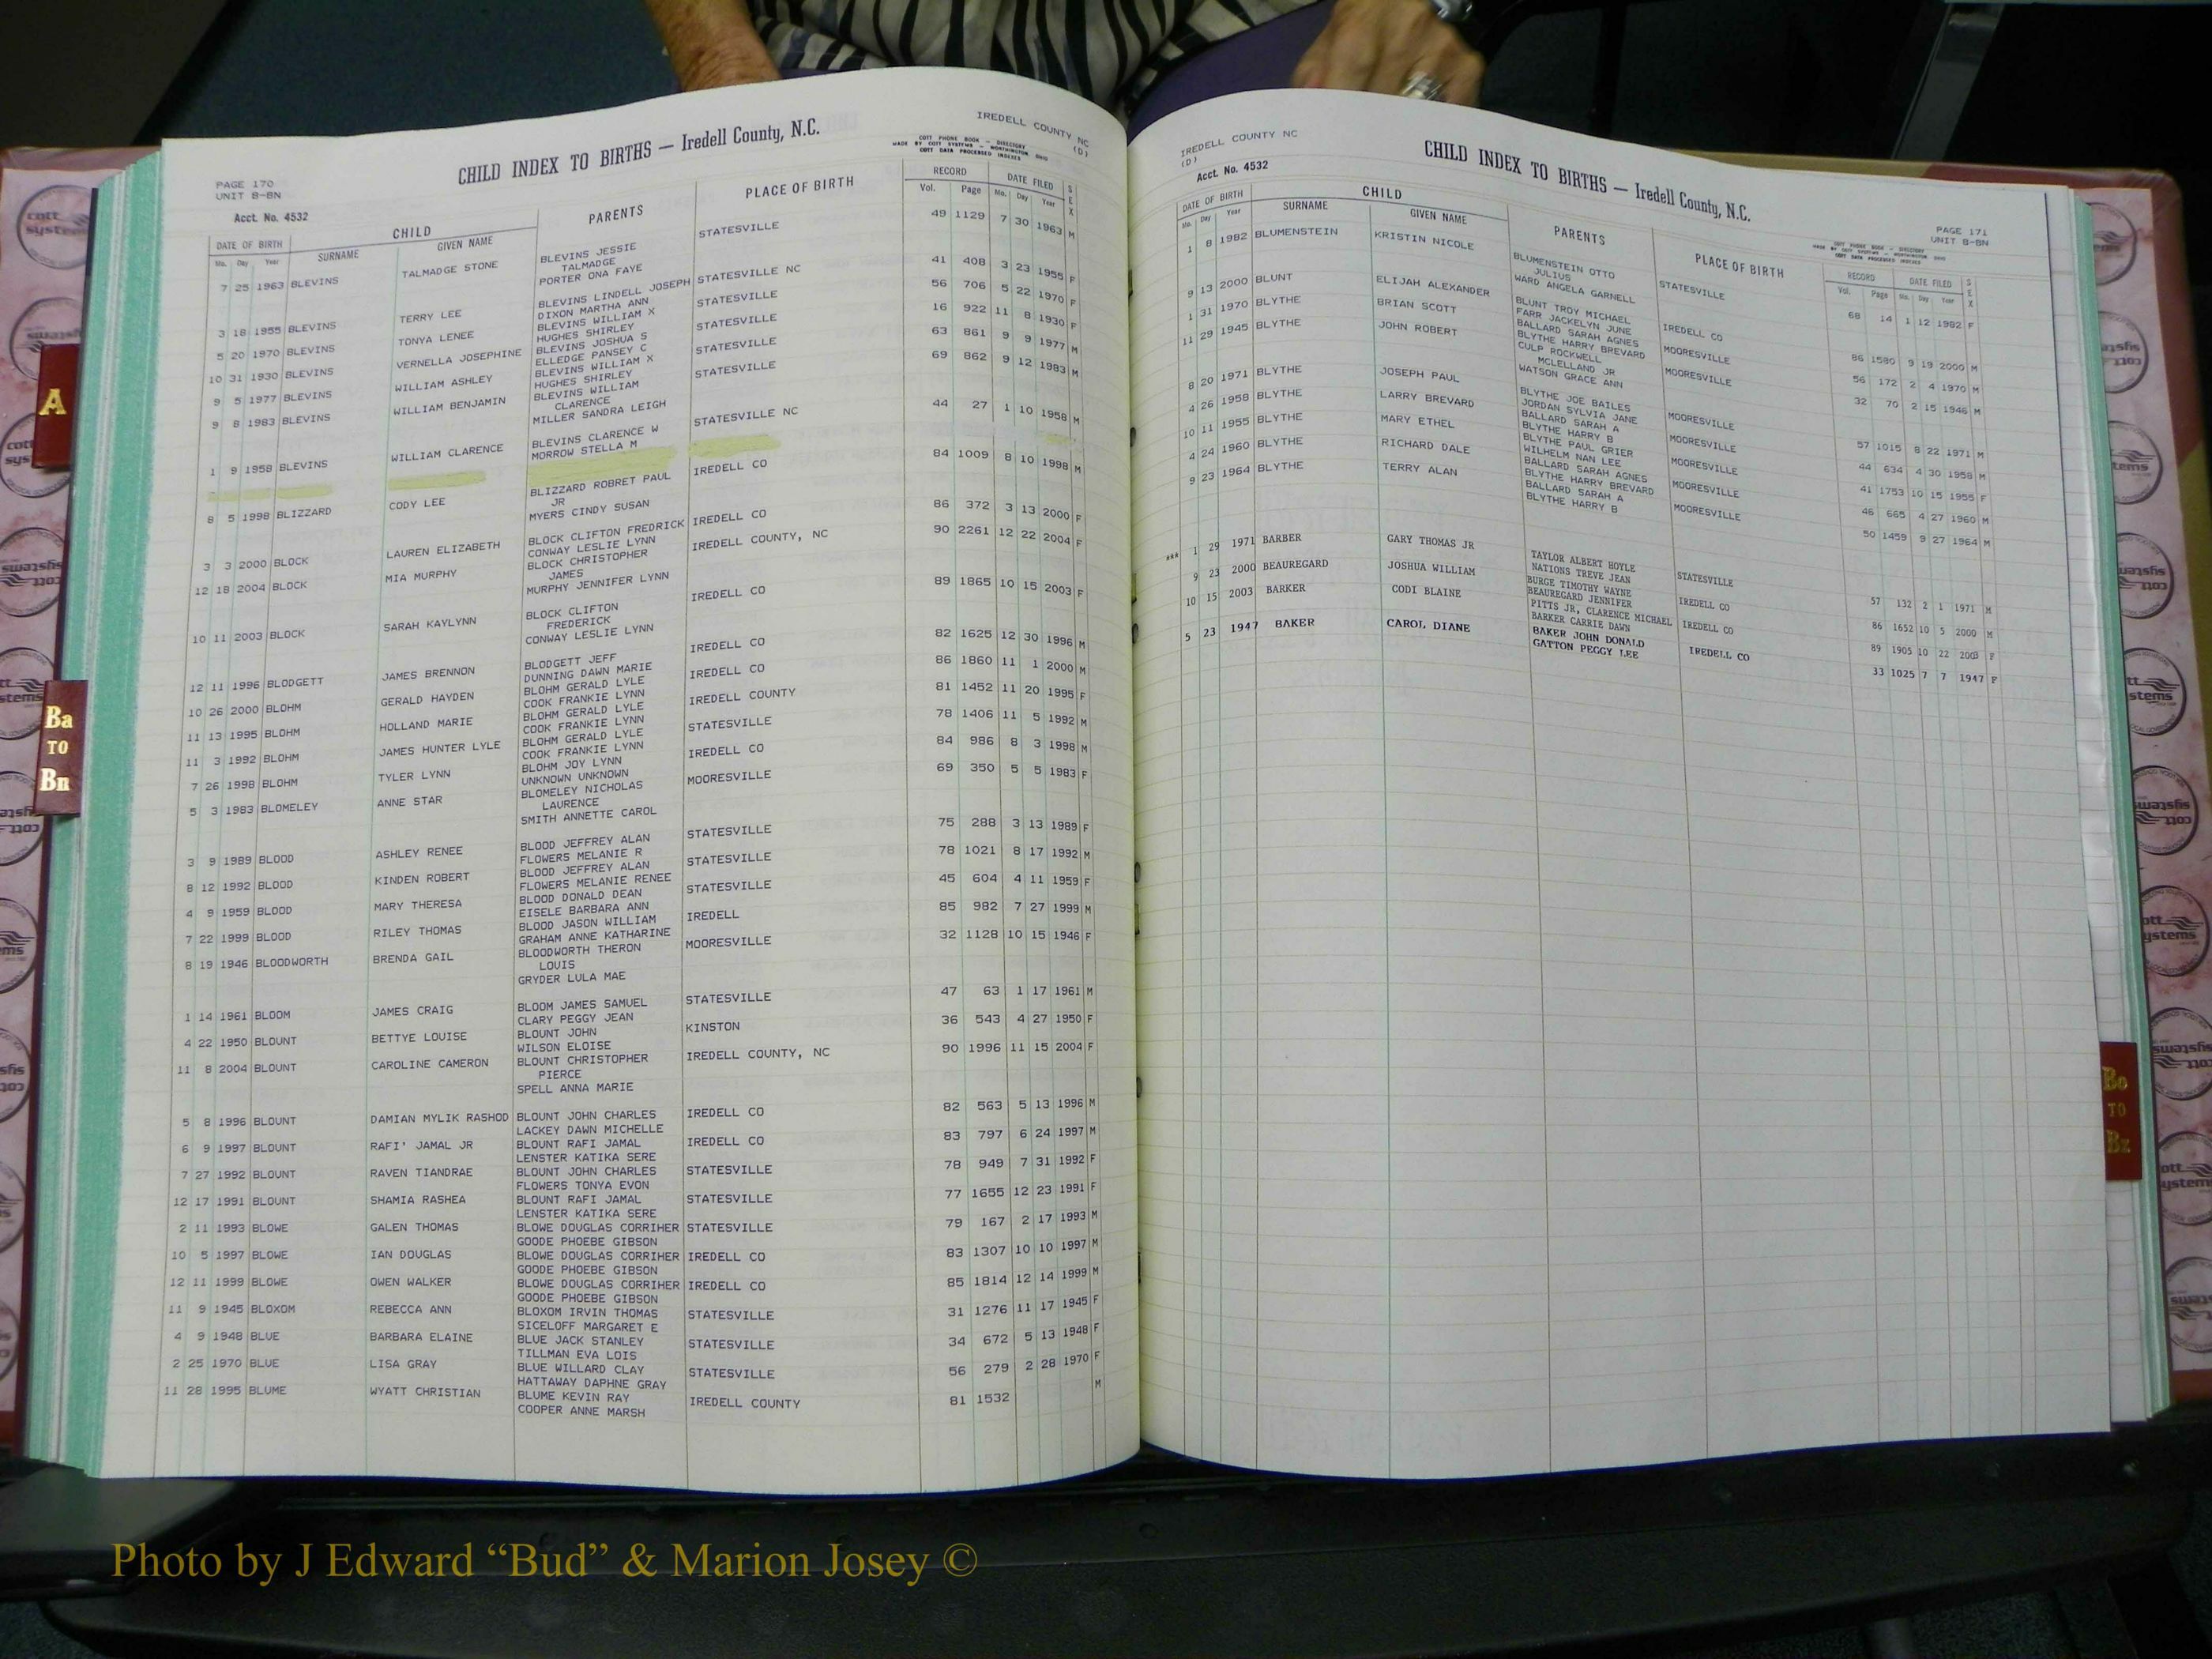 IREDELL COUNTY NC
(D)
CHILD INDEX TO BIRTHS — Iredell County, N.C.
COTT PHONE BOOK - DIRECTORY
MADE BY COTT SYSTEMS - WORTHINGTON OHIO
COTT DATA PROCESSED INDEXES
PAGE 170
UNIT B-BN
Acct. No. 4532
DATE OF BIRTH CHILD PARENTS PLACE OF BIRTH RECORD DATE FILED SEX
Mo. Day Year SURNAME GIVEN NAME Vol. Page Mo. Day Year
7 25 1963 BLEVINS TALMADGE STONE BLEVINS JESSIE STATESVILLE 49 1129 7 30 1963 M
TALMADGE
PORTER ONA FAYE
3 18 1955 BLEVINS TERRY LEE BLEVINS LINDELL JOSEPH STATESVILLE NC 41 408 3 23 1955 F
DIXON MARTHA ANN
5 20 1970 BLEVINS TONYA LENEE BLEVINS WILLIAM X STATESVILLE 56 706 5 22 1970 F
HUGHES SHIRLEY
10 31 1930 BLEVINS VERNELLA JOSEPHINE BLEVINS JOSHUA S STATESVILLE 16 922 11 8 1930 F
ELLEDGE PANSEY C
9 5 1977 BLEVINS WILLIAM ASHLEY BLEVINS WILLIAM X STATESVILLE 63 861 9 9 1977 M
HUGHES SHIRLEY
9 8 1983 BLEVINS WILLIAM BENJAMIN BLEVINS WILLIAM STATESVILLE 69 862 9 12 1983 M
CLARENCE
MILLER SANDRA LEIGH
1 9 1958 BLEVINS WILLIAM CLARENCE BLEVINS CLARENCE W STATESVILLE NC 44 27 1 10 1958 M
MORROW STELLA M
8 5 1998 BLIZZARD CODY LEE BLIZZARD ROBRET PAUL IREDELL CO 84 1009 8 10 1998 M
JR
MYERS CINDY SUSAN
3 3 2000 BLOCK LAUREN ELIZABETH BLOCK CLIFTON FREDRICK IREDELL CO 86 372 3 13 2000 F
CONWAY LESLIE LYNN
12 18 2004 BLOCK MIA MURPHY BLOCK CHRISTOPHER IREDELL COUNTY, NC 90 2261 12 22 2004 F
JAMES
MURPHY JENNIFER LYNN
10 11 2003 BLOCK SARAH KAYLYNN BLOCK CLIFTON IREDELL CO 89 1865 10 15 2003 F
FREDERICK
CONWAY LESLIE LYNN
12 11 1996 BLODGETT JAMES BRENNON BLODGETT JEFF IREDELL CO 82 1625 12 30 1996 M
DUNNING DAWN MARIE
10 26 2000 BLOHM GERALD HAYDEN BLOHM GERALD LYLE IREDELL CO 86 1860 11 1 2000 M
COOK FRANKIE LYNN
11 13 1995 BLOHM HOLLAND MARIE BLOHM GERALD LYLE IREDELL COUNTY 81 1452 11 20 1995 F
COOK FRANKIE LYNN
11 3 1992 BLOHM JAMES HUNTER LYLE BLOHM GERALD LYLE STATESVILLE 78 1406 11 5 1992 M
COOK FRANKIE LYNN
7 26 1998 BLOHM TYLER LYNN BLOHM JOY LYNN IREDELL CO 84 986 8 3 1998 M
UNKNOWN UNKNOWN
5 3 1983 BLOMELEY ANNE STAR BLOMELEY NICHOLAS MOORESVILLE 69 350 5 5 1983 F
LAURENCE
SMITH ANNETTE CAROL
3 9 1989 BLOOD ASHLEY RENEE BLOOD JEFFREY ALAN STATESVILLE 75 288 3 13 1989 F
FLOWERS MELANIE R
8 12 1992 BLOOD KINDEN ROBERT BLOOD JEFFREY ALAN STATESVILLE 78 1021 8 17 1992 M
FLOWERS MELANIE RENEE
4 9 1959 BLOOD MARY THERESA BLOOD DONALD DEAN STATESVILLE 45 604 4 11 1959 F
EISELE BARBARA ANN
7 22 1999 BLOOD RILEY THOMAS BLOOD JASON WILLIAM IREDELL 85 982 7 27 1999 M
GRAHAM ANNE KATHARINE
8 19 1946 BLOODWORTH BRENDA GAIL BLOODWORTH THERON MOORESVILLE 32 1128 10 15 1946 F
LOUIS
GRYDER LULA MAE
1 14 1961 BLOOM JAMES CRAIG BLOOM JAMES SAMUEL STATESVILLE 47 63 1 17 1961 M
CLARY PEGGY JEAN
4 22 1950 BLOUNT BETTYE LOUISE BLOUNT JOHN KINSTON 36 543 4 27 1950 F
WILSON ELOISE
11 8 2004 BLOUNT CAROLINE CAMERON BLOUNT CHRISTOPHER IREDELL COUNTY, NC 90 1996 11 15 2004 F
PIERCE
SPELL ANNA MARIE
5 8 1996 BLOUNT DAMIAN MYLIK RASHOD BLOUNT JOHN CHARLES IREDELL CO 82 563 5 13 1996 M
LACKEY DAWN MICHELLE
6 9 1997 BLOUNT RAFI' JAMAL JR BLOUNT RAFI JAMAL IREDELL CO 83 797 6 24 1997 M
LENSTER KATIKA SERE
7 27 1992 BLOUNT RAVEN TIANDRAE BLOUNT JOHN CHARLES STATESVILLE 78 949 7 31 1992 F
FLOWERS TONYA EVON
12 17 1991 BLOUNT SHAMIA RASHEA BLOUNT RAFI JAMAL STATESVILLE 77 1655 12 23 1991 F
LENSTER KATIKA SERE
2 11 1993 BLOWE GALEN THOMAS BLOWE DOUGLAS CORRIHER STATESVILLE 79 167 2 17 1993 M
GOODE PHOEBE GIBSON
10 5 1997 BLOWE IAN DOUGLAS BLOWE DOUGLAS CORRIHER IREDELL CO 83 1307 10 10 1997 M
GOODE PHOEBE GIBSON
12 11 1999 BLOWE OWEN WALKER BLOWE DOUGLAS CORRIHER IREDELL CO 85 1814 12 14 1999 M
GOODE PHOEBE GIBSON
11 9 1945 BLOXOM REBECCA ANN BLOXOM IRVIN THOMAS STATESVILLE 31 1276 11 17 1945 F
SICELOFF MARGARET E
4 9 1948 BLUE BARBARA ELAINE BLUE JACK STANLEY STATESVILLE 34 672 5 13 1948 F
TILLMAN EVA LOIS
2 25 1970 BLUE LISA GRAY BLUE WILLARD CLAY STATESVILLE 56 279 2 28 1970 F
HATTAWAY DAPHNE GRAY
11 28 1995 BLUME WYATT CHRISTIAN BLUME KEVIN RAY IREDELL COUNTY 81 1532 M
COOPER ANNE MARSH
IREDELL COUNTY NC
(D)
Acct. No. 4532
CHILD INDEX TO BIRTHS — Iredell County, N.C.
PAGE 171
UNIT B-BN
COTT PHONE BOOK - DIRECTORY
MADE BY COTT SYSTEMS - WORTHINGTON OHIO
COTT DATA PROCESSED INDEXES
DATE OF BIRTH CHILD PARENTS PLACE OF BIRTH RECORD DATE FILED SEX
Mo. Day Year SURNAME GIVEN NAME Vol. Page Mo. Day Year
1 8 1982 BLUMENSTEIN KRISTIN NICOLE BLUMENSTEIN OTTO STATESVILLE 68 14 1 12 1982 F
JULIUS
WARD ANGELA GARNELL
9 13 2000 BLUNT ELIJAH ALEXANDER BLUNT TROY MICHAEL IREDELL CO 86 1580 9 19 2000 M
FARR JACKELYN JUNE
1 31 1970 BLYTHE BRIAN SCOTT BALLARD SARAH AGNES MOORESVILLE 56 172 2 4 1970 M
BLYTHE HARRY BREVARD
11 29 1945 BLYTHE JOHN ROBERT CULP ROCKWELL MOORESVILLE 32 70 2 15 1946 M
MCLELLAND JR
WATSON GRACE ANN
8 20 1971 BLYTHE JOSEPH PAUL BLYTHE JOE BAILES MOORESVILLE 57 1015 8 22 1971 M
JORDAN SYLVIA JANE
4 26 1958 BLYTHE LARRY BREVARD BALLARD SARAH A MOORESVILLE 44 634 4 30 1958 M
BLYTHE HARRY B
10 11 1955 BLYTHE MARY ETHEL BLYTHE PAUL GRIER MOORESVILLE 41 1753 10 15 1955 F
WILHELM NAN LEE
4 24 1960 BLYTHE RICHARD DALE BALLARD SARAH AGNES MOORESVILLE 46 665 4 27 1960 M
BLYTHE HARRY BREVARD
9 23 1964 BLYTHE TERRY ALAN BALLARD SARAH A MOORESVILLE 50 1459 9 27 1964 M
BLYTHE HARRY B
*** 1 29 1971 BARBER GARY THOMAS JR TAYLOR ALBERT HOYLE STATESVILLE 57 132 2 1 1971 M
NATIONS TREVE JEAN
9 23 2000 BEAUREGARD JOSHUA WILLIAM BURGE TIMOTHY WAYNE IREDELL CO 86 1652 10 5 2000 M
BEAUREGARD JENNIFER
10 15 2003 BARKER CODI BLAINE PITTS JR, CLARENCE MICHAEL IREDELL CO 89 1905 10 22 2003 F
BARKER CARRIE DAWN
5 23 1947 BAKER CAROL DIANE BAKER JOHN DONALD IREDELL CO 33 1025 7 7 1947 F
GATTON PEGGY LEE
A
Ba
TO
Bn
Bo
TO
Bz
cott
systems
Photo by J Edward “Bud” & Marion Josey ©